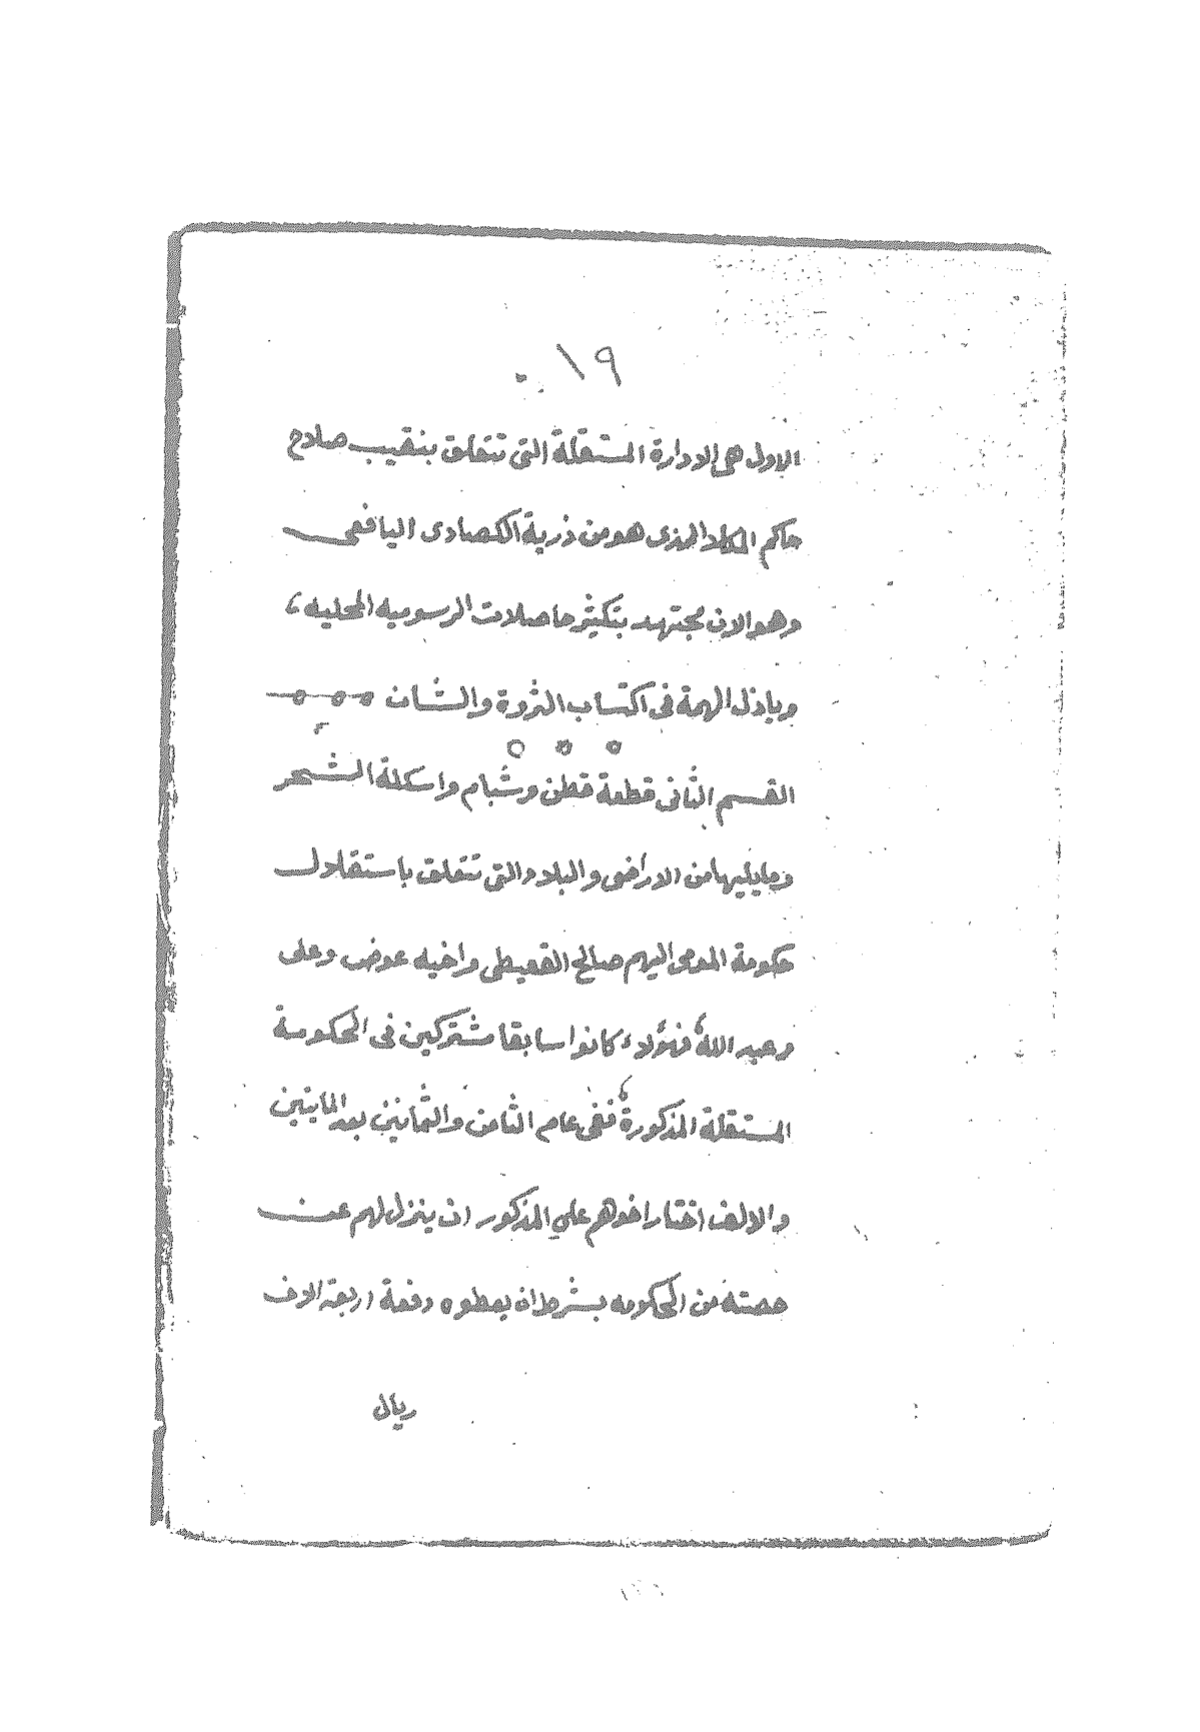 ١٩
الاول هى الادارة المستقلة التى تتعلق بنقيب صلاح
حاكم المكلا الذى هو من ذرية الكصادى اليافعى
وهو الان مجتهد بتكثير حاصلات الرسوميه المحليه ،
وباذل الهمة فى اكتساب الثروة والشان
القسم الثانى قطعة قطن وشبام واسكلة الشحر
ومايليها من الاراضى والبلاد والتى تتعلق باستقلال
حكومة المومى اليهم صالح القعيطى واخيه عوض وعلى
وعبد الله فهؤلاء كانوا سابقا مشتركين فى الحكومة
المستقلة المذكورة ففى عام الثامن والثمانين بعد المايتين
والالف اختار اخوهم علي المذكور ان ينزل لهم عن
حصته من الحكومه بشرط ان يعطوه دفعة اربعة الاف
ريال